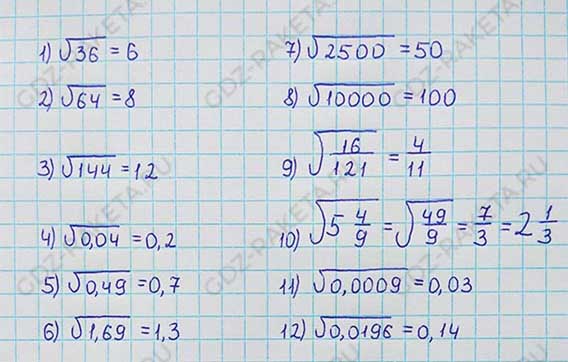 1) √36 = 6
2) √64 = 8
3) √144 = 12
4) √0,04 = 0,2
5) √0,49 = 0,7
6) √1,69 = 1,3
7) √2500 = 50
8) √10000 = 100
9) √16/121 = 4/11
10) √5 4/9 = √49/9 = 7/3 = 2 1/3
11) √0,0009 = 0,03
12) √0,0196 = 0,14
GDZ-RAKETA.RU